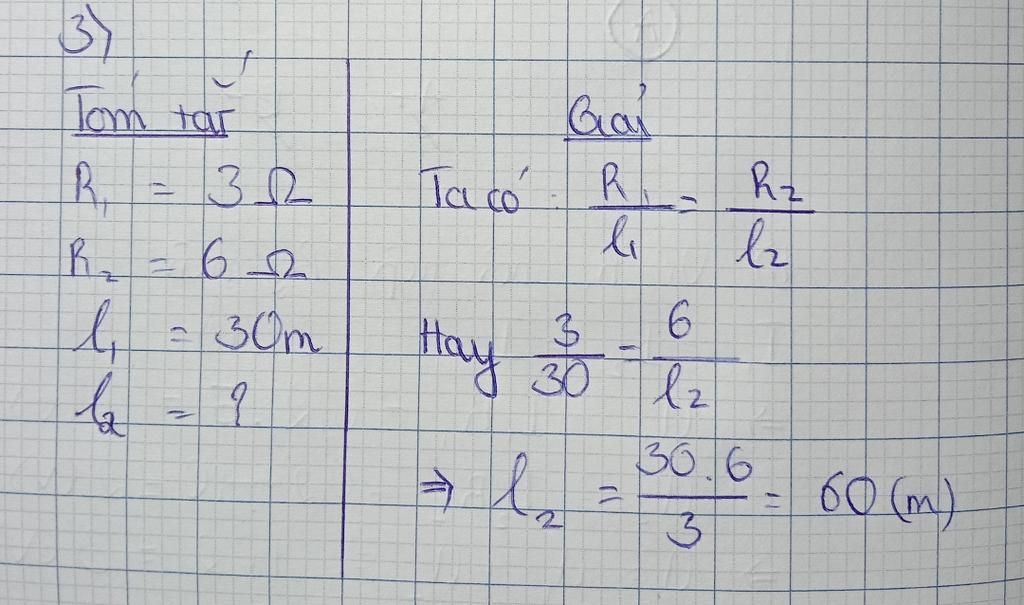 3)
Tóm tắt
R₁ = 3 Ω
R₂ = 6 Ω
l₁ = 30m
l₂ = ?
Giải
Ta có: R₁/l₁ = R₂/l₂
Hay 3/30 = 6/l₂
⇒ l₂ = 30.6/3 = 60 (m)